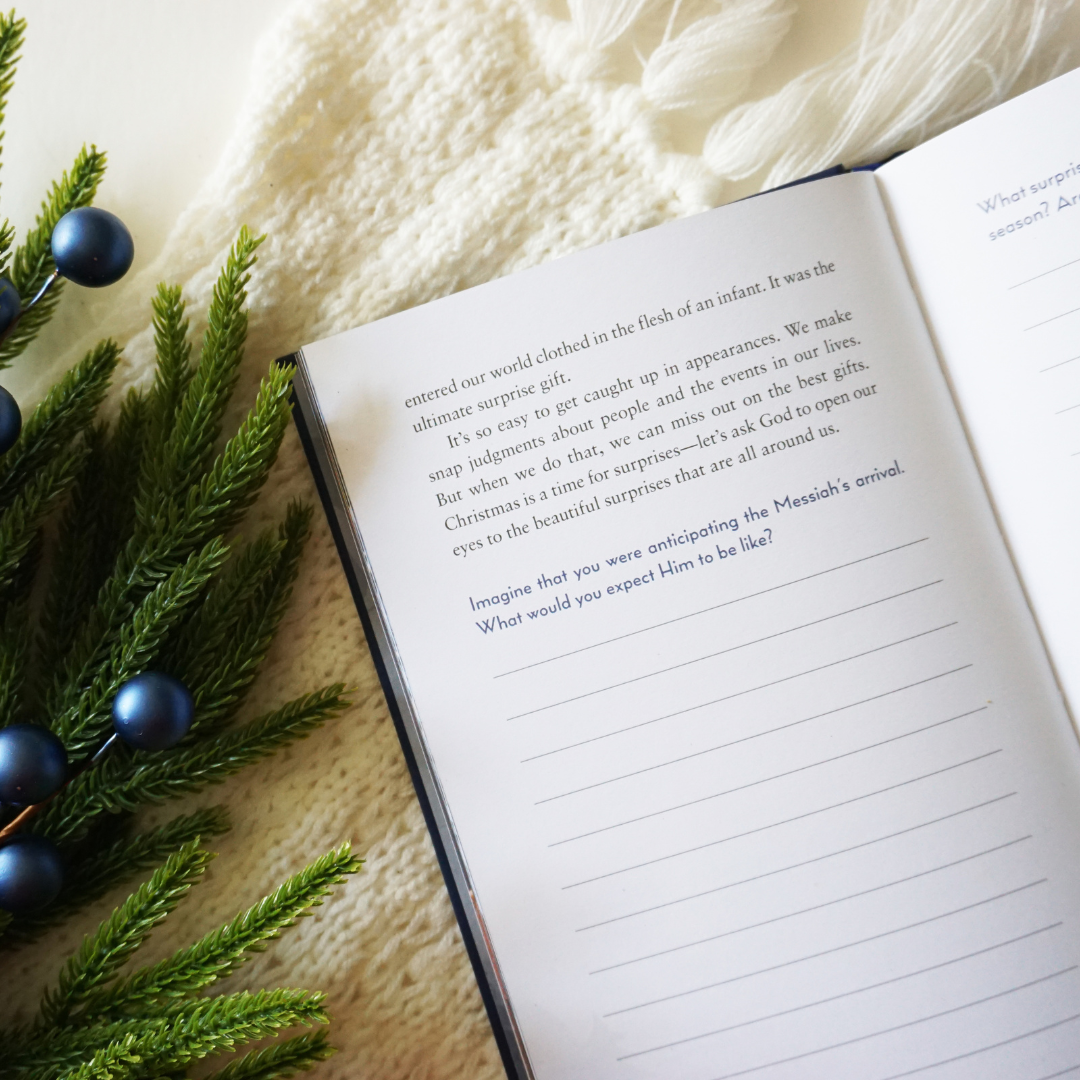 entered our world clothed in the flesh of an infant. It was the
ultimate surprise gift.
It's so easy to get caught up in appearances. We make
snap judgments about people and the events in our lives.
But when we do that, we can miss out on the best gifts.
Christmas is a time for surprises—let's ask God to open our
eyes to the beautiful surprises that are all around us.
Imagine that you were anticipating the Messiah's arrival.
What would you expect Him to be like?
What
season?